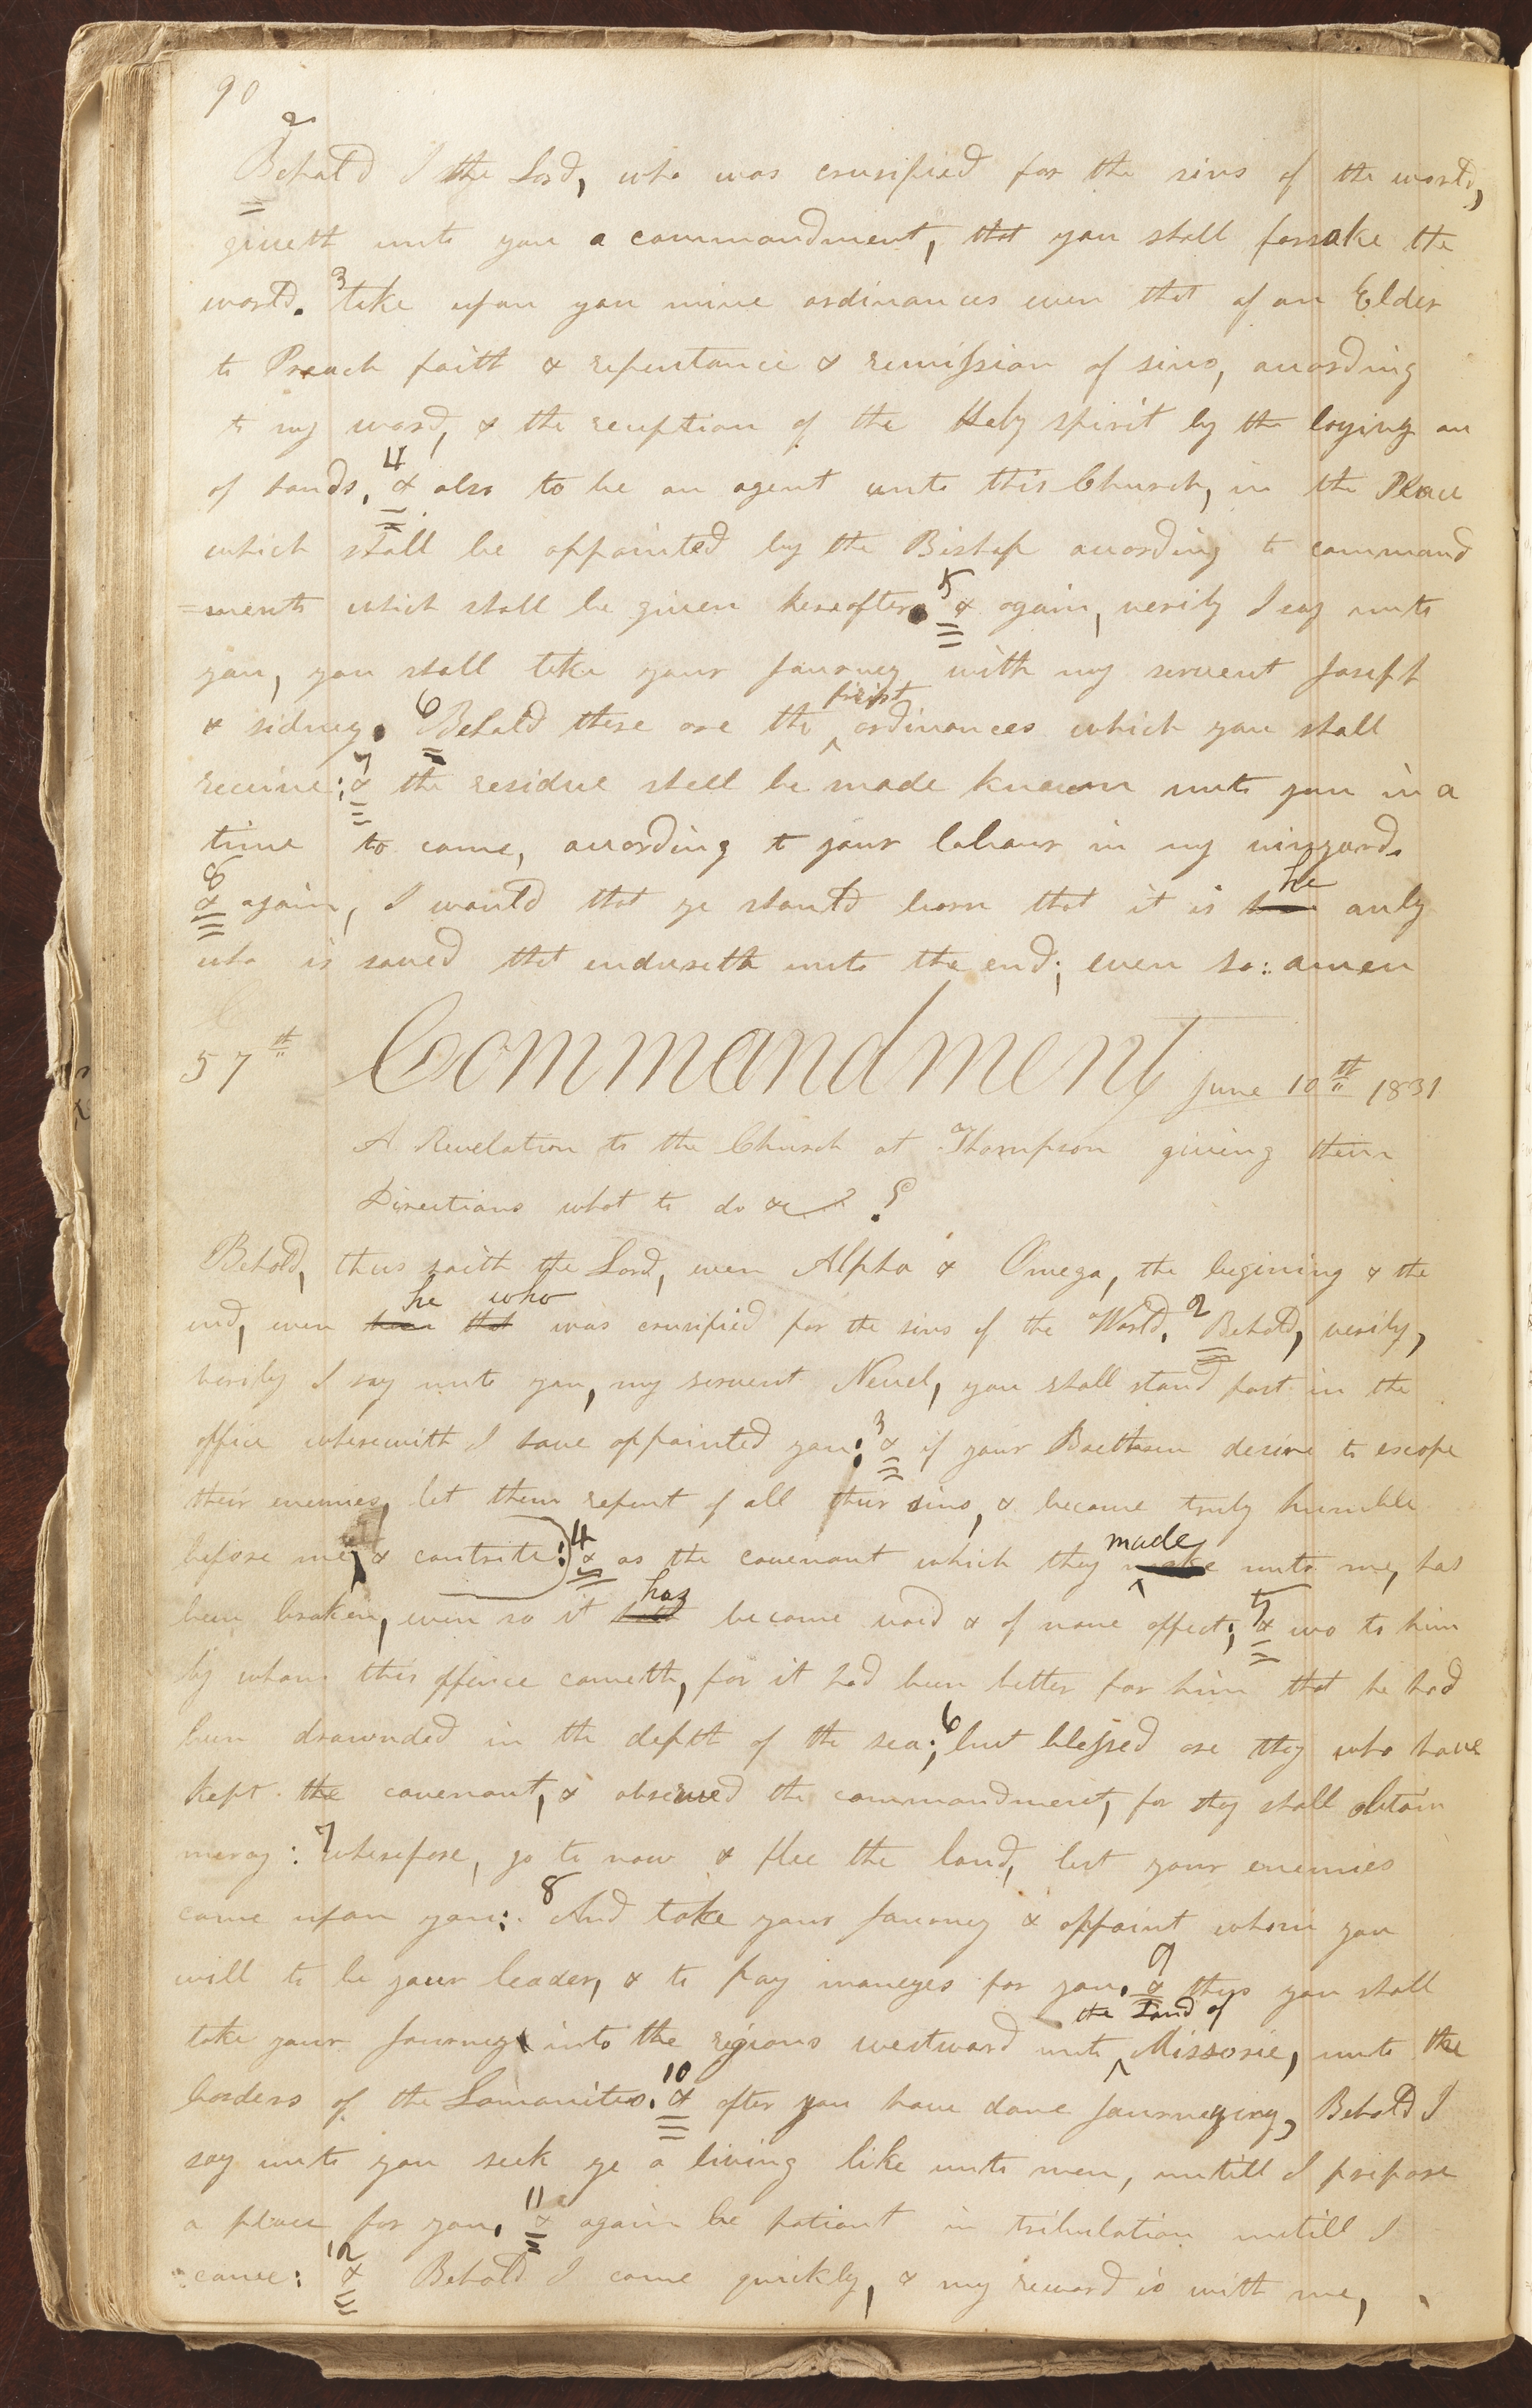 90
2
Behold I the Lord, who was crusified for the sins of the world,
giveth unto you a commandment, that you shall forsake the
world. 3 take upon you mine ordinances even that of an Elder
to Preach faith & repentance & remission of sins, according
to my word, & the reception of the Holy spirit by the laying on
of hands, 4 & also to be an agent unto this Church, in the Place
which shall be appointed by the Bishop according to command
=ments which shall be given hereafter. 5 & again, verily I say unto
you, you shall take your Journey with my servent Joseph
first
& sidney. 6 Behold these are the ^ ordinances which you shall
receive: 7 & the residue shall be made known unto you in a
time to come, according to your labour in my vinyard.
he
8 & again, I would that ye should learn that it is him only
who is saved that endureth unto the end; even so: amen
57th Commandment June 10th 1831
A Revelation to the Church at Thompson giving them
Directions what to do &c
Behold, thus saith the Lord, even Alpha & Omega, the begining & the
he who
end, even him that was crusified for the sins of the World. 2 Behold, verily,
verily I say unto you, my servent Newel, you shall stand fast in the
office wherewith I have appointed you: 3 & if your Brethren desire to escape
their enemies, let them repent of all their sins, & become truly humble
made
before me, & contrite: 4 & as the covenant which they make unto me, has
has
been broken, even so it hath become void & of none effect; 5 & wo to him
by whom this offence cometh, for it had been better for him that he had
been drownded in the depth of the sea; 6 but blessed are they who have
kept the covenant, & observed the commandment, for they shall obtain
mercy: 7 wherefore, go to now & flee the land, lest your enemies
come upon you: 8 And take your Journey & appoint whom you
will to be your leader, & to pay moneyes for you. 9 & thus you shall
the Land of
take your Journey into the regions westward unto ^ Missorie, unto the
borders of the Lamanites. 10 & after you have done Journeying, Behold I
say unto you seek ye a living like unto men, untill I prepare
a place for you. 11 & again be patient in tribulation untill I
come: 12 & Behold I come quickly, & my reward is with me,